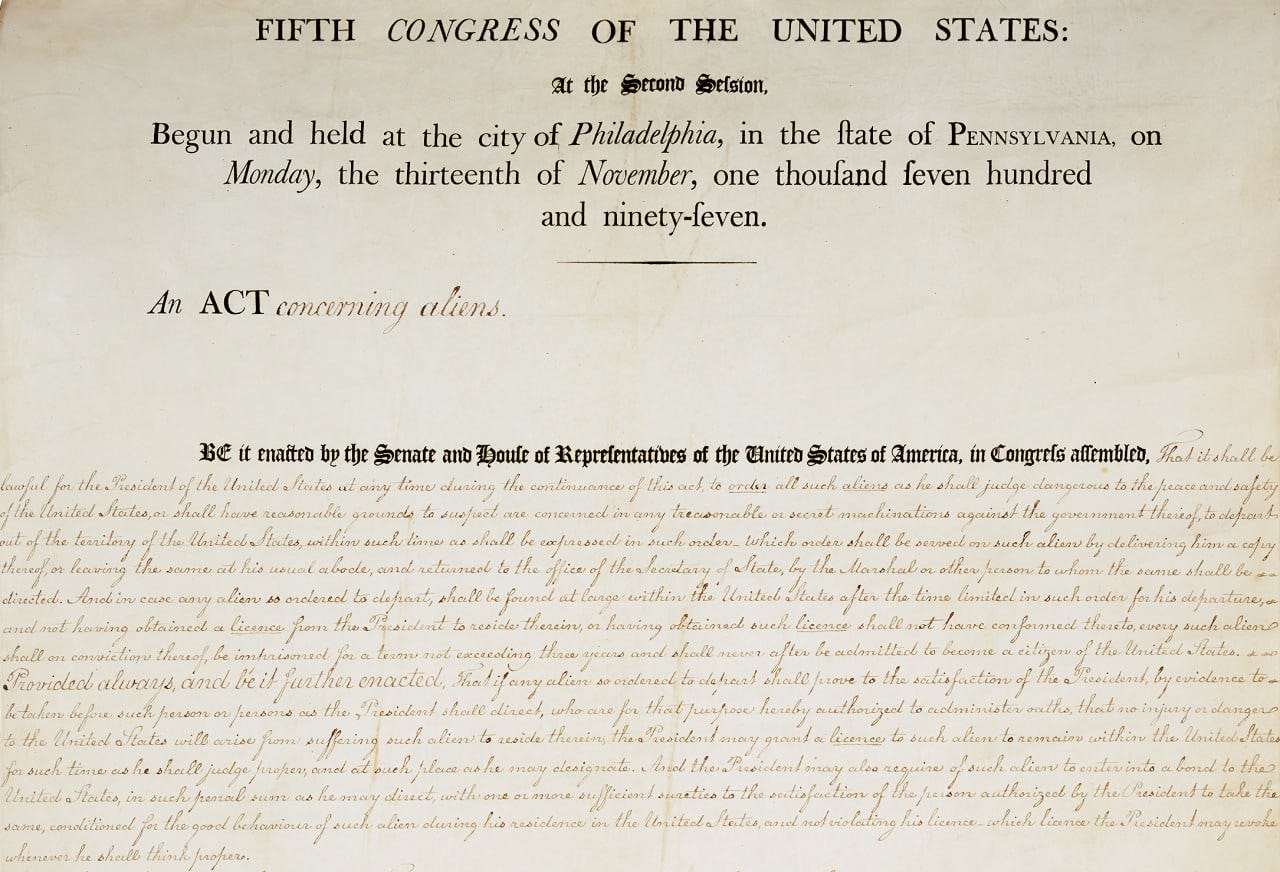 FIFTH CONGRESS OF THE UNITED STATES:
At the Second Seſsion,
Begun and held at the city of Philadelphia, in the ſtate of PENNSYLVANIA, on
Monday, the thirteenth of November, one thouſand ſeven hundred
and ninety-ſeven.
An ACT concerning aliens.
BE it enacted by the Senate and Houſe of Repreſentatives of the United States of America, in Congreſs aſſembled, That it shall be
lawful for the President of the United States at any time during the continuance of this act, to order all such aliens as he shall judge dangerous to the peace and safety
of the United States, or shall have reasonable grounds to suspect are concerned in any treasonable or secret machinations against the government thereof, to depart
out of the territory of the United States, within such time as shall be expressed in such order - which order shall be served on such alien by delivering him a copy
thereof, or leaving the same at his usual abode, and returned to the office of the Secretary of State, by the Marshal or other person to whom the same shall be
directed. And in case any alien so ordered to depart, shall be found at large within the United States after the time limited in such order for his departure,
and not having obtained a licence from the President to reside therein, or having obtained such licence shall not have conformed thereto, every such alien
shall on conviction thereof, be imprisoned for a term not exceeding three years and shall never after be admitted to become a citizen of the United States.
Provided always, and be it further enacted, That if any alien so ordered to depart shall prove to the satisfaction of the President, by evidence to
be taken before such person or persons as the President shall direct, who are for that purpose hereby authorized to administer oaths, that no injury or danger
to the United States will arise from suffering such alien to reside therein, the President may grant a licence to such alien to remain within the United States
for such time as he shall judge proper, and at such place as he may designate. And the President may also require of such alien to enter into a bond to the
United States, in such penal sum as he may direct, with one or more sufficient sureties to the satisfaction of the person authorized by the President to take the
same, conditioned for the good behaviour of such alien during his residence in the United States, and not violating his licence - which licence the President may revoke
whenever he shall think proper.